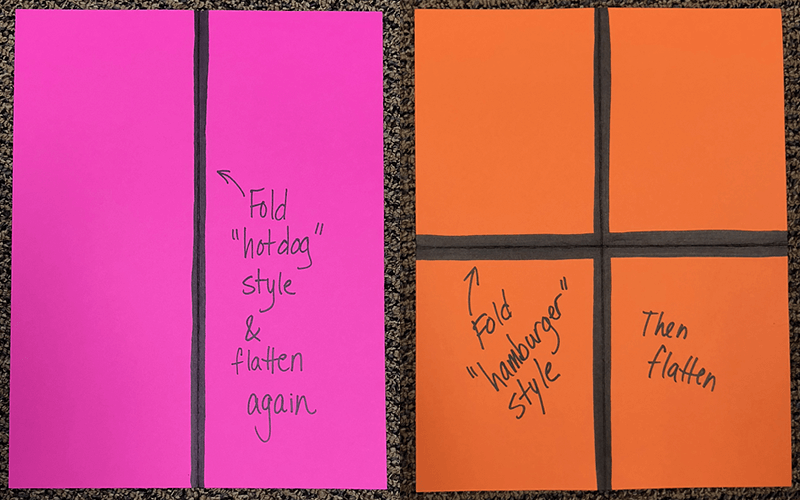 Fold
"hotdog"
style
&
flatten
again
Fold
"hamburger"
style
Then
flatten